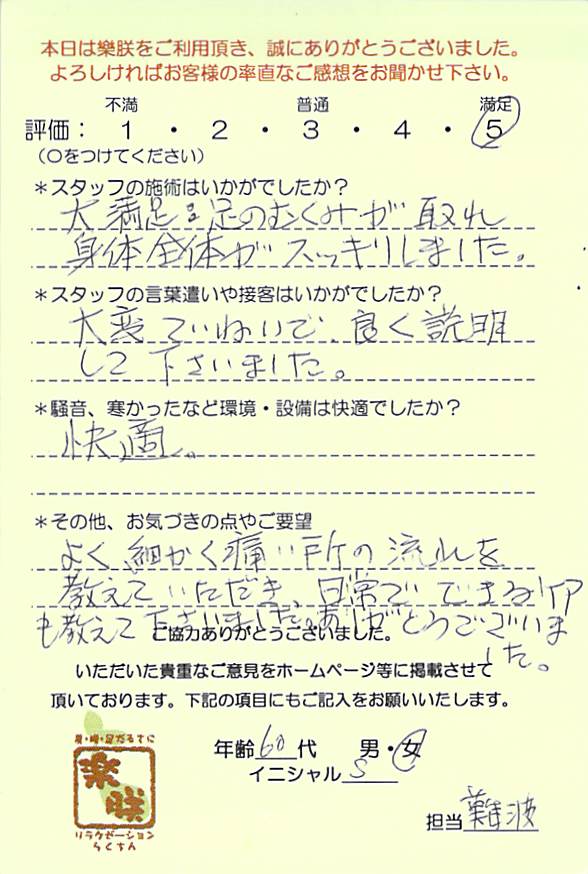 本日は樂朕をご利用頂き、誠にありがとうございました。
よろしければお客様の率直なご感想をお聞かせ下さい。
不満 普通 満足
評価： 1 ・ 2 ・ 3 ・ 4 ・ 5
（○をつけてください）
＊スタッフの施術はいかがでしたか？
大満足 足のむくみが取れ
身体全体がスッキリしました。
＊スタッフの言葉遣いや接客はいかがでしたか？
大変ていねいで、良く説明
して下さいました。
＊騒音、寒かったなど環境・設備は快適でしたか？
快適。
＊その他、お気づきの点やご要望
よく細かく痛い所の流れを
教えていただき、日常でできるケア
も教えて下さいました。ありがとうございま
した。
ご協力ありがとうございました。
いただいた貴重なご意見をホームページ等に掲載させて
頂いております。下記の項目にもご記入をお願いいたします。
年齢60代 男・女
イニシャル S
担当 難波
足だるさに
樂朕
リラクゼーション
らくちん